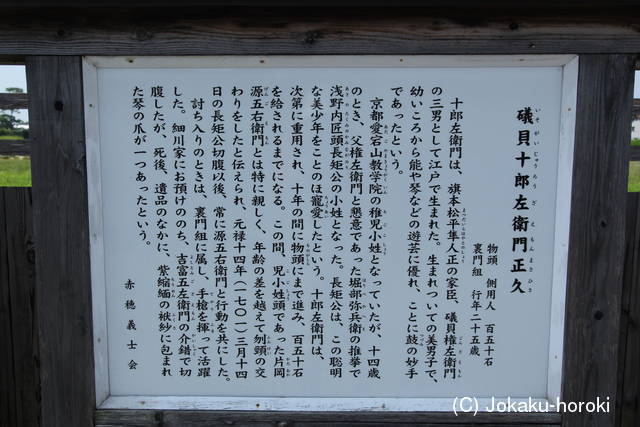 礒貝十郎左衛門正久
いそがいじゅうろうざえもんまさひさ
物頭　側用人　百五十石
裏門組　行年二十五歳
十郎左衛門は、旗本松平隼人正の家臣、礒貝権左衛門
の三男として江戸で生まれた。生まれついての美男子で、
幼いころから能や琴などの遊芸に優れ、ことに鼓の妙手
であったという。
京都愛宕山教学院の稚児小姓となっていたが、十四歳
のとき、父権左衛門と懇意であった堀部弥兵衛の推挙で
浅野内匠頭長矩公の小姓となった。長矩公は、この聡明
な美少年をことのほか寵愛したという。十郎左衛門は、
次第に重用され、十年の間に物頭にまで進み、百五十石
を給されるまでになる。この間、児小姓頭であった片岡
源五右衛門とは特に親しく、年齢の差を越えて刎頸の交
わりをしたと伝えられ、元禄十四年（一七〇一）三月十四
日の長矩公切腹以後、常に源五右衛門と行動を共にした。
討ち入りのときは、裏門組に属し、手槍を揮って活躍
した。細川家にお預けののち、吉富五左衛門の介錯で切
腹したが、死後、遺品のなかに、紫縮緬の袱紗に包まれ
た琴の爪が一つあったという。
赤穂義士会
(C) Jokaku-horoki